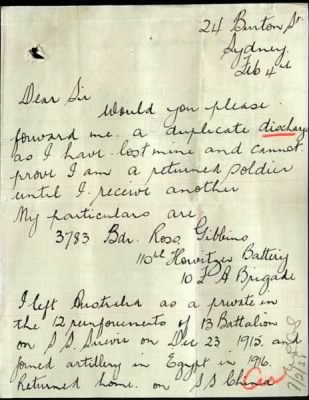 24 Burton St
Sydney.
Feb 4th
Dear Sir
Would you please
forward me a duplicate discharge
as I have lost mine and cannot
prove I am a returned soldier
until I receive another
My particulars are
3783 Bdr. Ross Gibbins
110th Howitzer Battery
10 F A Brigade
I left Australia as a private in
the 12 reinforcements of 13 Battalion
on S.S. Suevic on Dec 23 1915. and
joined artillery in Egypt in 1916.
Returned home on SS China